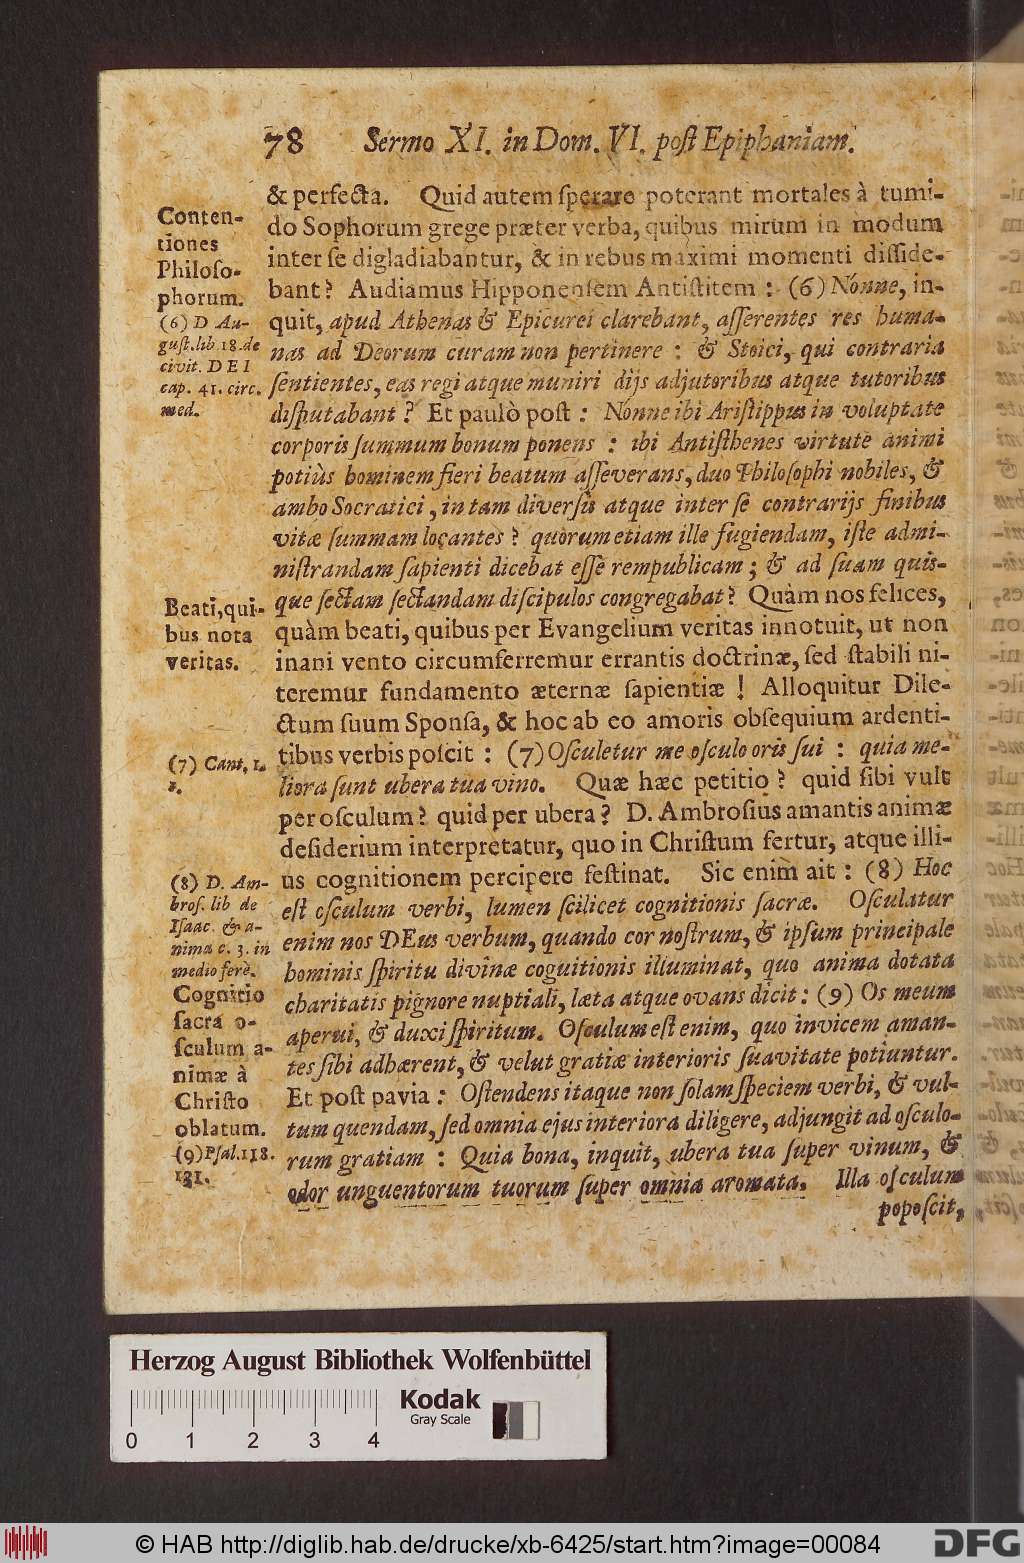 78 Sermo XI. in Dom. VI. post Epiphaniam.
& perfecta. Quid autem sperare poterant mortales à tumi-
do Sophorum grege præter verba, quibus mirum in modum
inter se digladiabantur, & in rebus maximi momenti disside-
bant? Audiamus Hipponensem Antistitem: (6) Nónne, in-
quit, apud Athenas & Epicurei clarebant, asserentes res huma-
nas ad Deorum curam non pertinere: & Stoici, qui contraria
sentientes, eas regi atque muniri dijs adjutoribus atque tutoribus
disputabant? Et paulò post: Nónne ibi Aristippus in voluptate
corporis summum bonum ponens: ibi Antisthenes virtute animi
potiùs hominem fieri beatum asseverans, duo Philosophi nobiles, &
ambo Socratici, in tam diversis atque inter se contrarijs finibus
vitæ summam locantes? quorum etiam ille fugiendam, iste admi-
nistrandam sapienti dicebat esse rempublicam; & ad suam quis-
que sectam sectandam discipulos congregabat? Quàm nos felices,
quàm beati, quibus per Evangelium veritas innotuit, ut non
inani vento circumferremur errantis doctrinæ, sed stabili ni-
teremur fundamento æternæ sapientiæ! Alloquitur Dile-
ctum suum Sponsa, & hoc ab eo amoris obsequium ardenti-
tibus verbis poscit: (7) Osculetur me osculo oris sui: quia me-
liora sunt ubera tua vino. Quæ hæc petitio? quid sibi vult
per osculum? quid per ubera? D. Ambrosius amantis animæ
desiderium interpretatur, quo in Christum fertur, atque illi-
us cognitionem percipere festinat. Sic enim ait: (8) Hoc
est osculum verbi, lumen scilicet cognitionis sacræ. Osculatur
enim nos DEus verbum, quando cor nostrum, & ipsum principale
hominis spiritu divinæ coguitionis illuminat, quo anima dotata
charitatis pignore nuptiali, læta atque ovans dicit: (9) Os meum
aperui, & duxi spiritum. Osculum est enim, quo invicem aman-
tes sibi adhærent, & velut gratiæ interioris suavitate potiuntur.
Et post pavia: Ostendens itaque non solam speciem verbi, & vul-
tum quendam, sed omnia ejus interiora diligere, adjungit ad osculo-
rum gratiam: Quia bona, inquit, ubera tua super vinum, &
odor unguentorum tuorum super omnia aromata. Illa osculum
poposcit,
Conten-
tiones
Philoso-
phorum.
(6) D Au-
gust. lib 18. de
civit. DEI
cap. 41. circ.
med.
Beati, qui-
bus nota
veritas.
(7) Cant. 1.
1.
(8) D. Am-
bros. lib de
Isaac. & a-
nima c. 3. in
medio ferè.
Cognitio
sacra o-
sculum a-
nimæ à
Christo
oblatum.
(9) Psal. 118.
131.
Herzog August Bibliothek Wolfenbüttel
Kodak
Gray Scale
0 1 2 3 4
© HAB http://diglib.hab.de/drucke/xb-6425/start.htm?image=00084
DFG